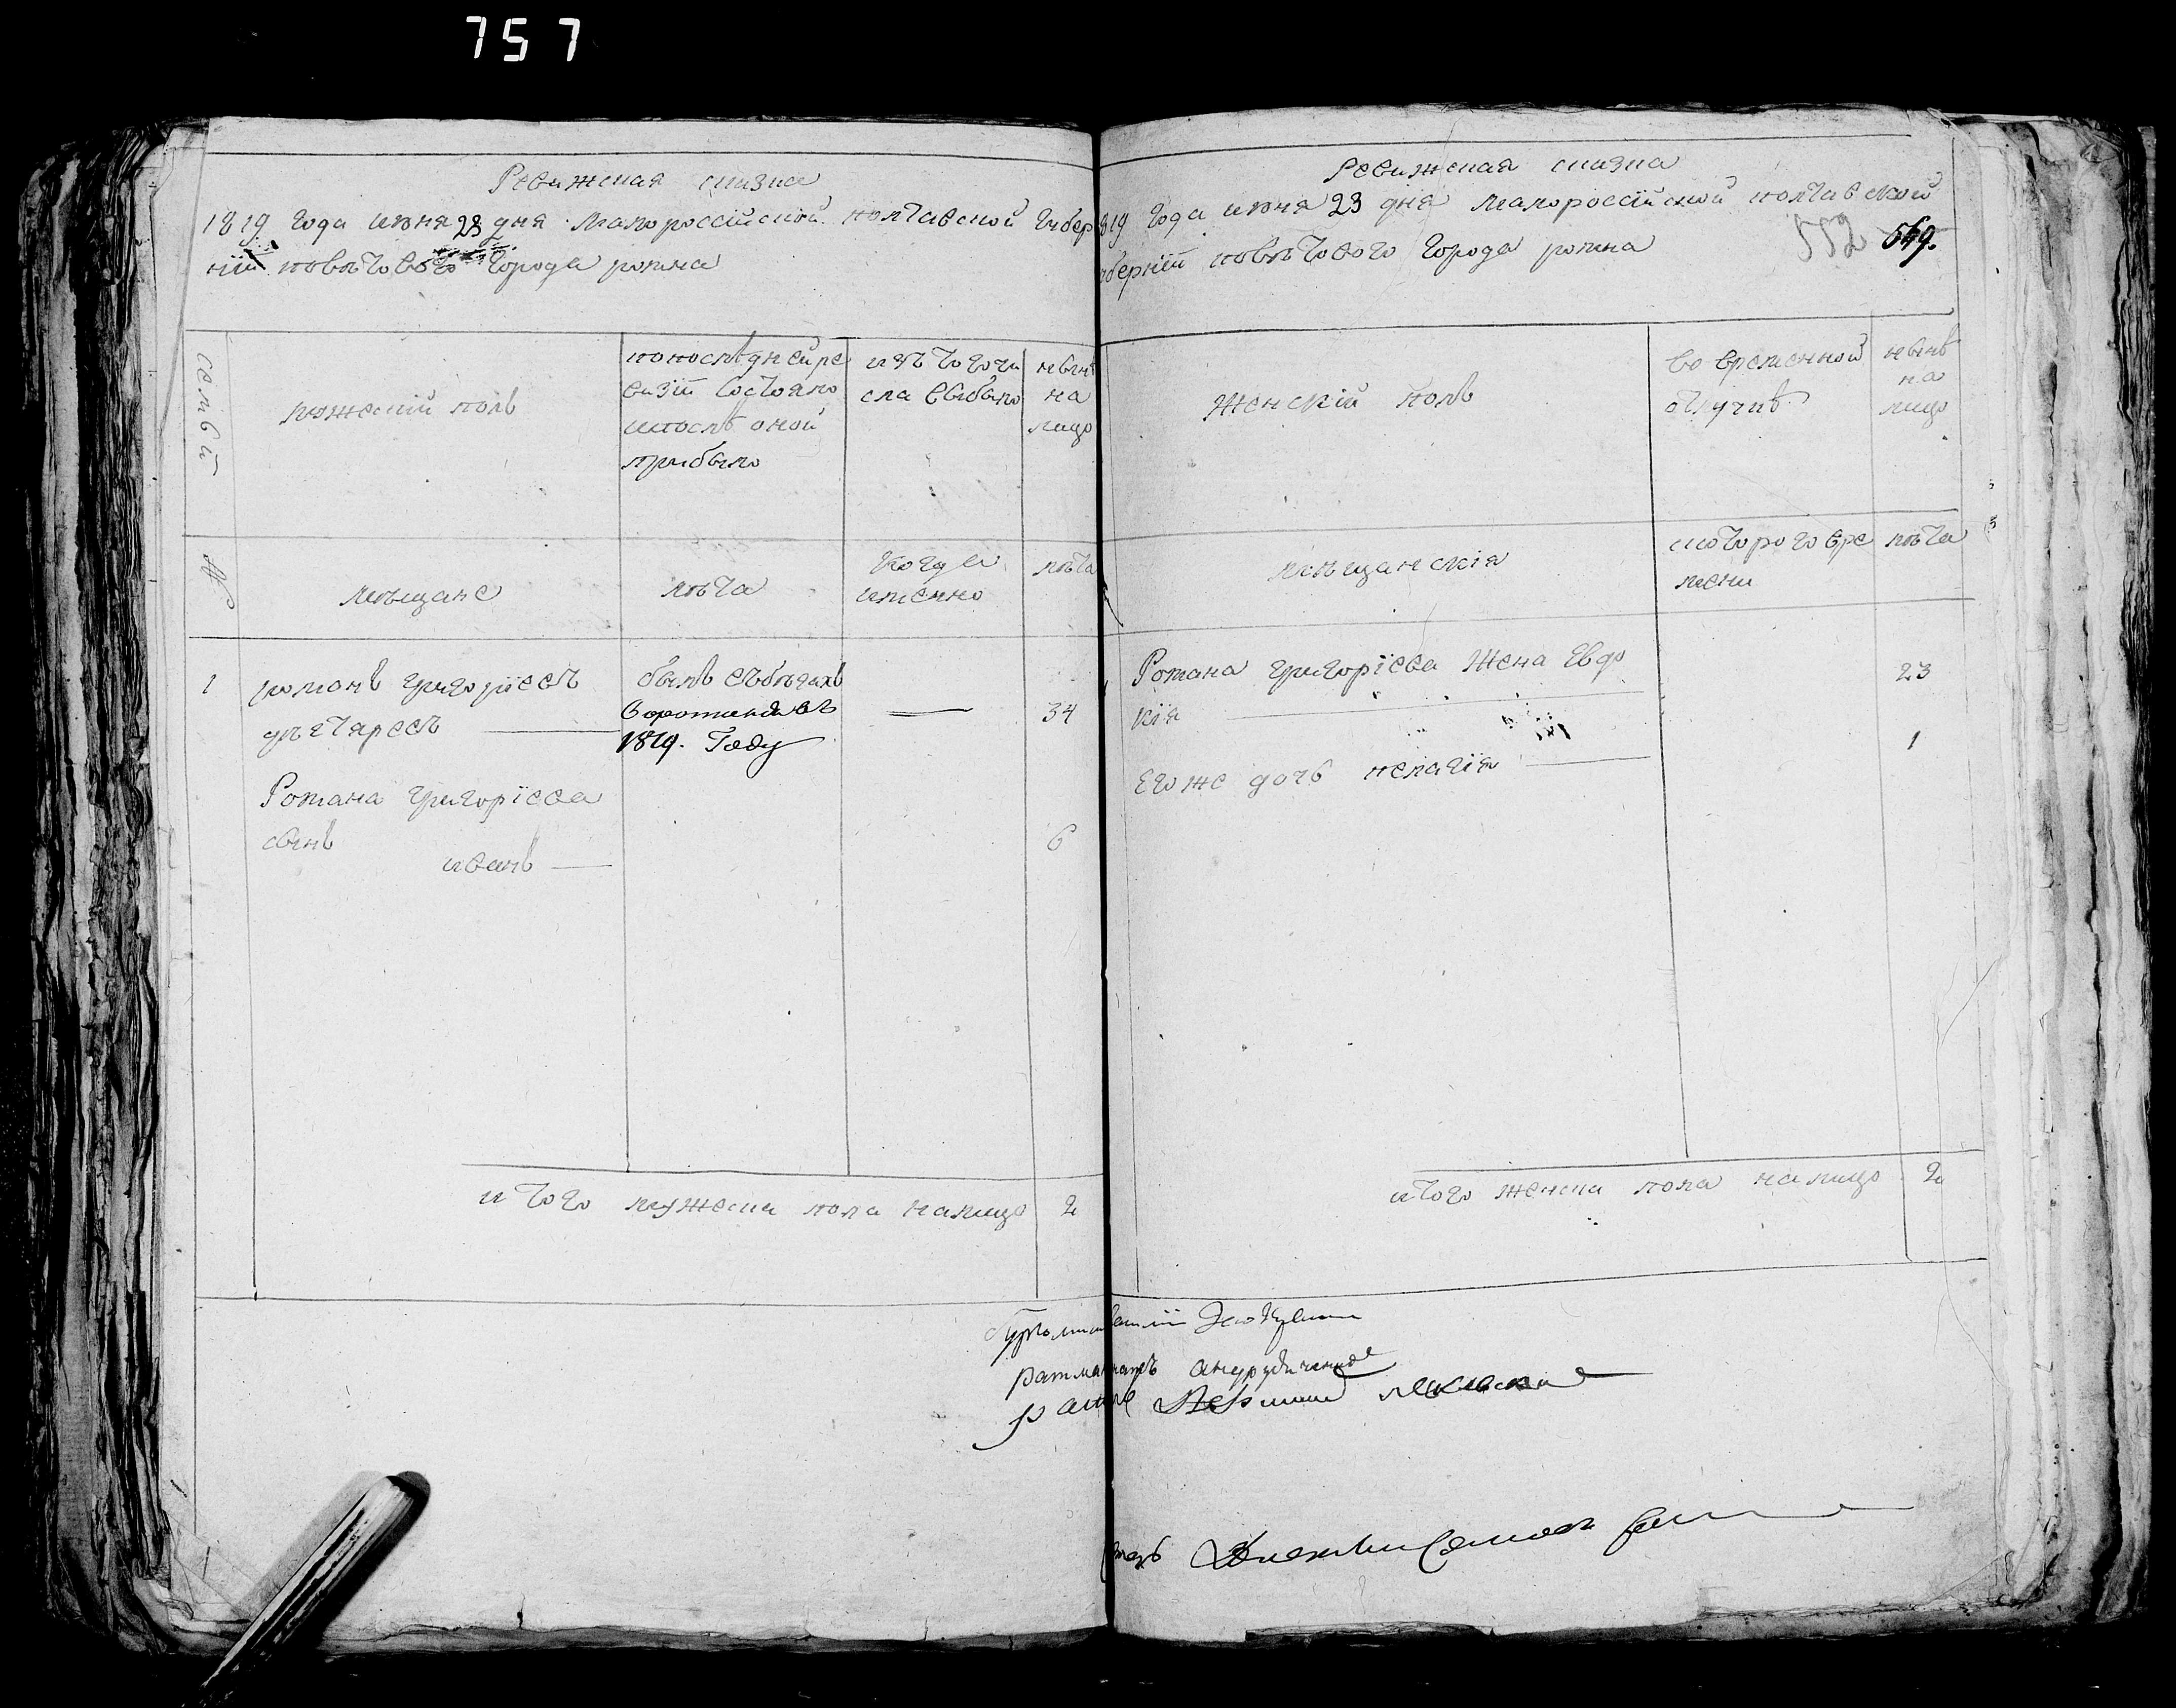 757
Ревижская сказка
1819 года июня 23 дня Малороссійской полтавской губер
ніи повѣтового города ромна
семьи
мужескій полъ
попослѣдней ре
визіи состояло
ипослѣ оной
прибыло
изъ того чи
сла выбыло
нынѣ
на
лицо
№
мѣщане
лѣта
когда
именно
лѣта
1
романъ григоріевъ
дѣгтяревъ
былъ въбѣгахъ
1819. Году
34
Романа григоріева
сынъ
иванъ
6
итого мужеска пола налицо 2
Ревижская сказка
819 года июня 23 дня малороссійской полтавской
губерніи повѣтового города ромна
552 569.
Женскій полъ
во временной
отлучкѣ
нынѣ
на
лицо
мѣщанскія
скоторого вре
мени
лѣта
Романа григоріева Жена Евдо
кія
23
Его же дочь пелагія
1
итого женска пола налицо 2